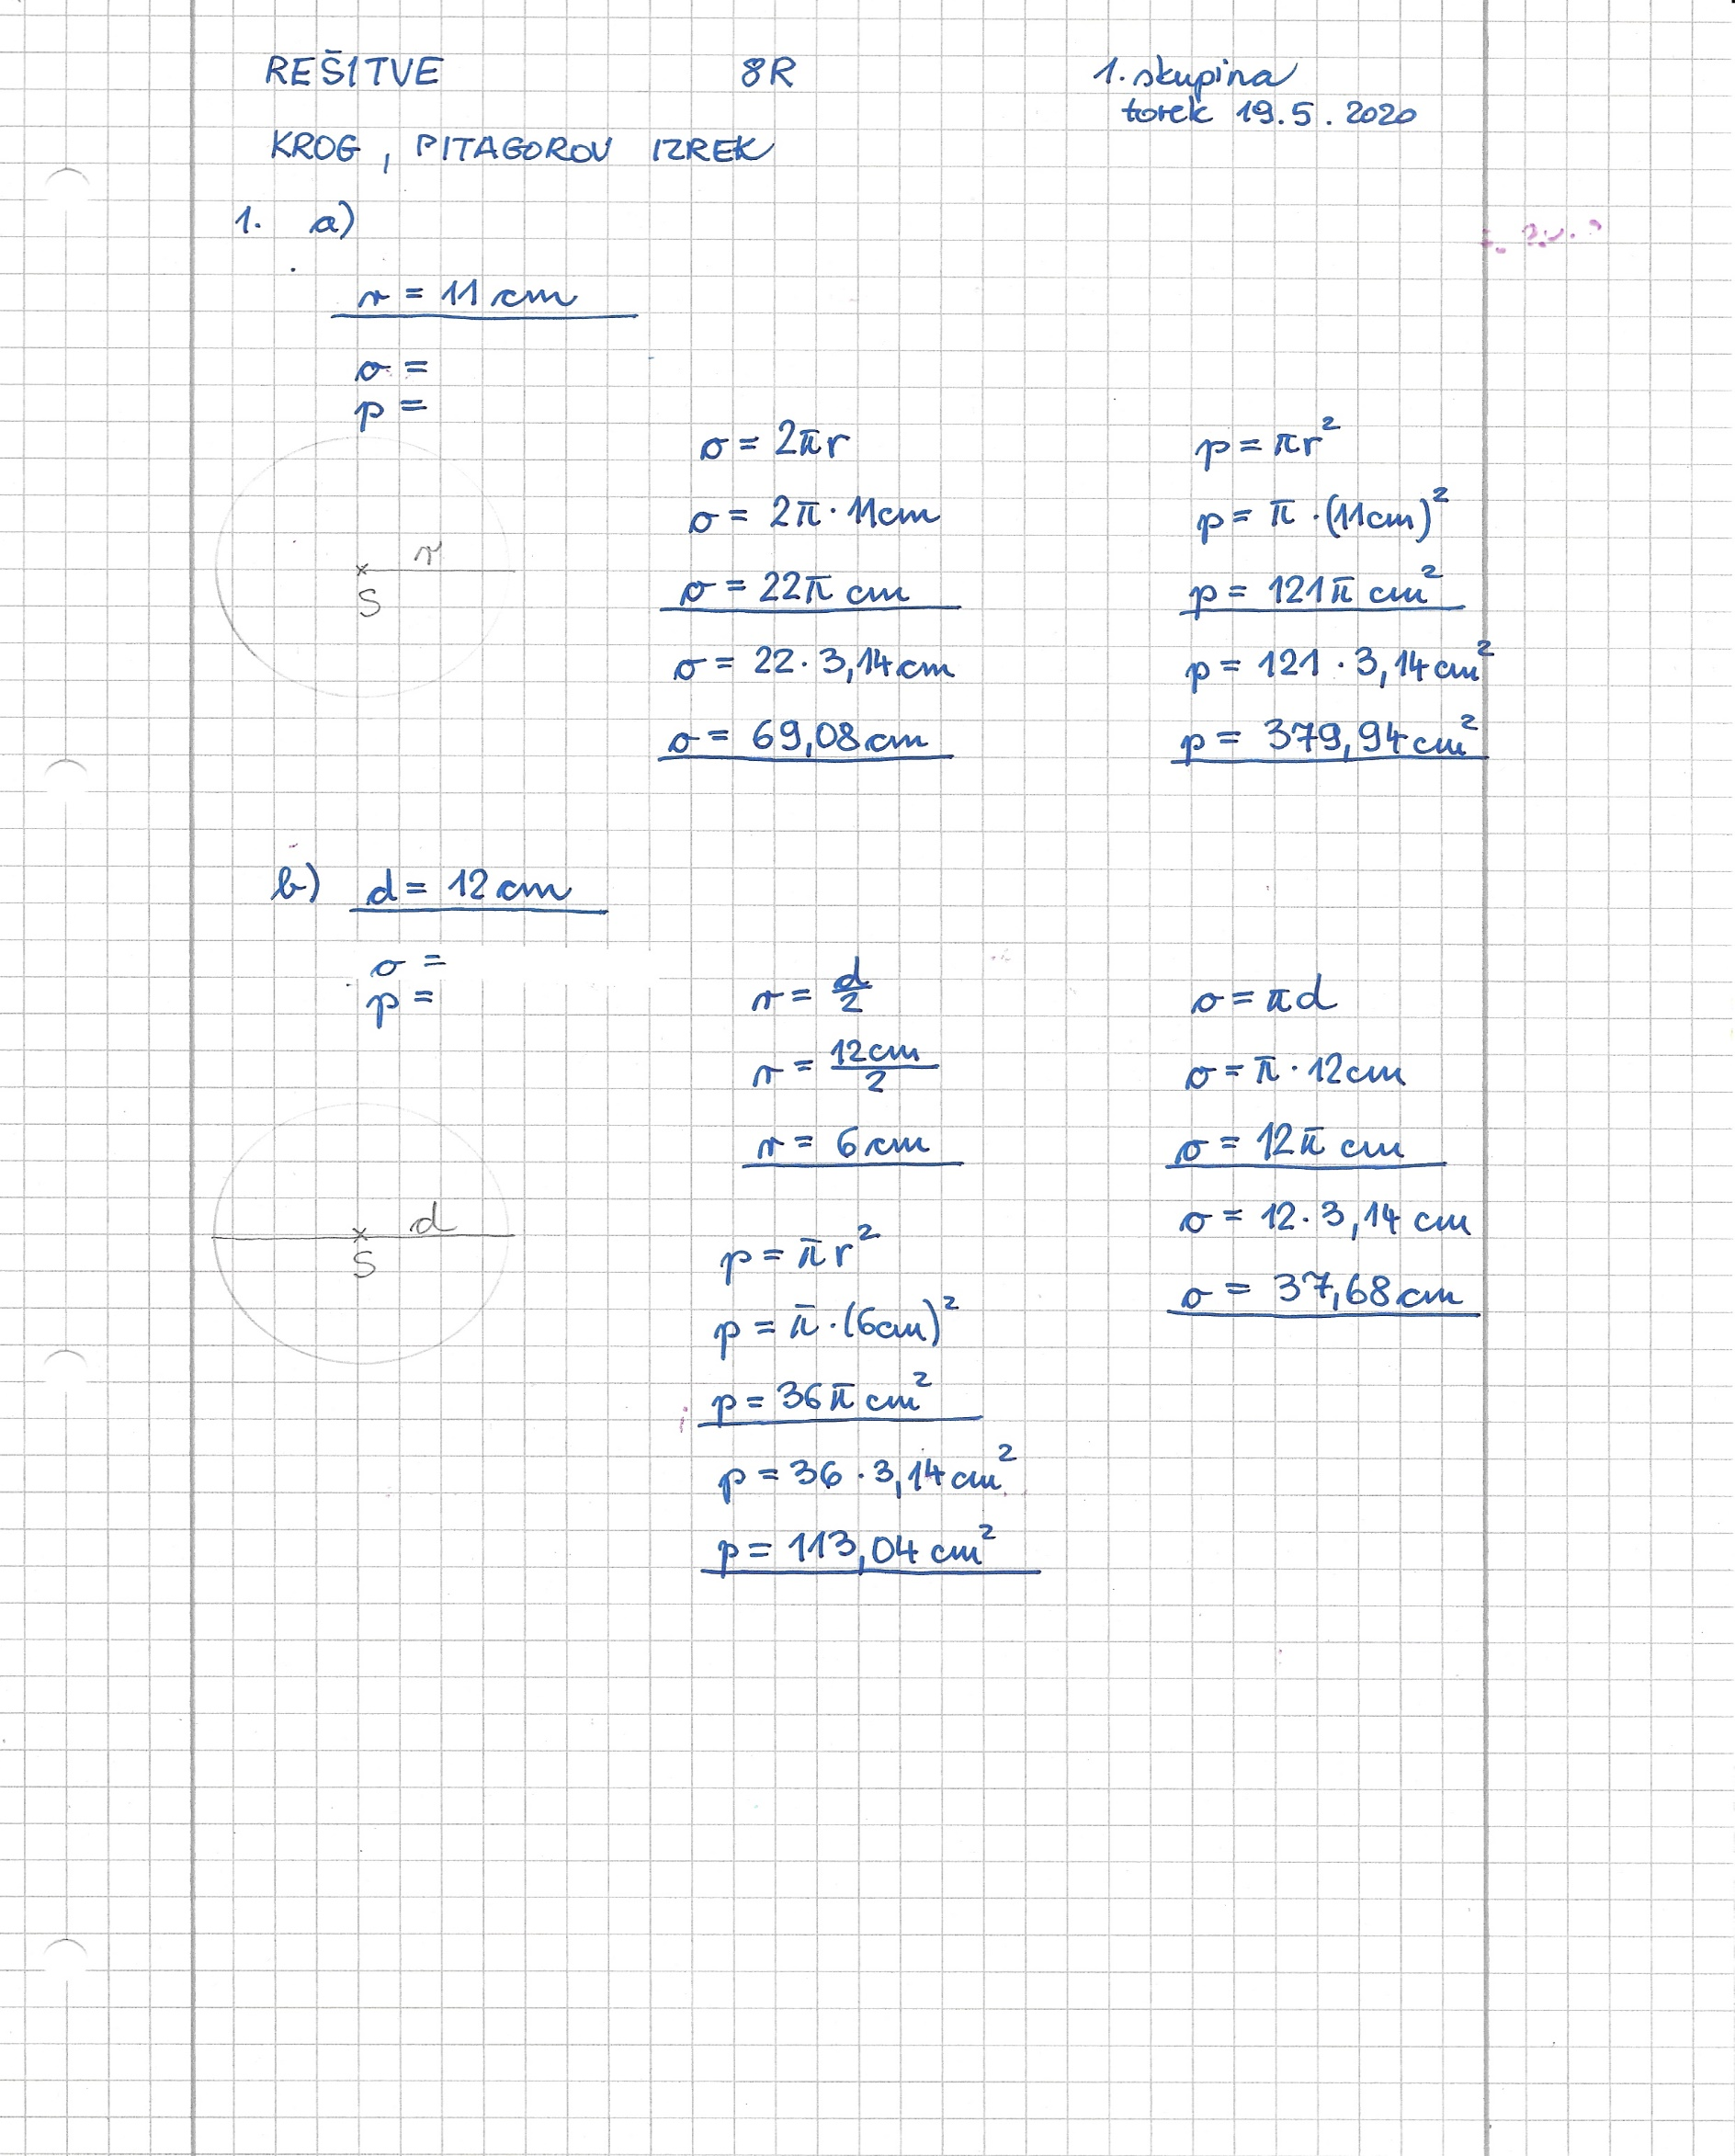 REŠITVE 8R 1. skupina
torek 19.5.2020
KROG, PITAGOROV IZREK
1. a)
r = 11 cm
o =
p =
r
S
o = 2πr
o = 2π · 11cm
o = 22π cm
o = 22 · 3,14 cm
o = 69,08 cm
p = πr²
p = π · (11cm)²
p = 121π cm²
p = 121 · 3,14 cm²
p = 379,94 cm²
b) d = 12 cm
o =
p =
d
S
r = d/2
r = 12cm/2
r = 6 cm
p = πr²
p = π · (6cm)²
p = 36π cm²
p = 36 · 3,14 cm²
p = 113,04 cm²
o = πd
o = π · 12cm
o = 12π cm
o = 12 · 3,14 cm
o = 37,68 cm